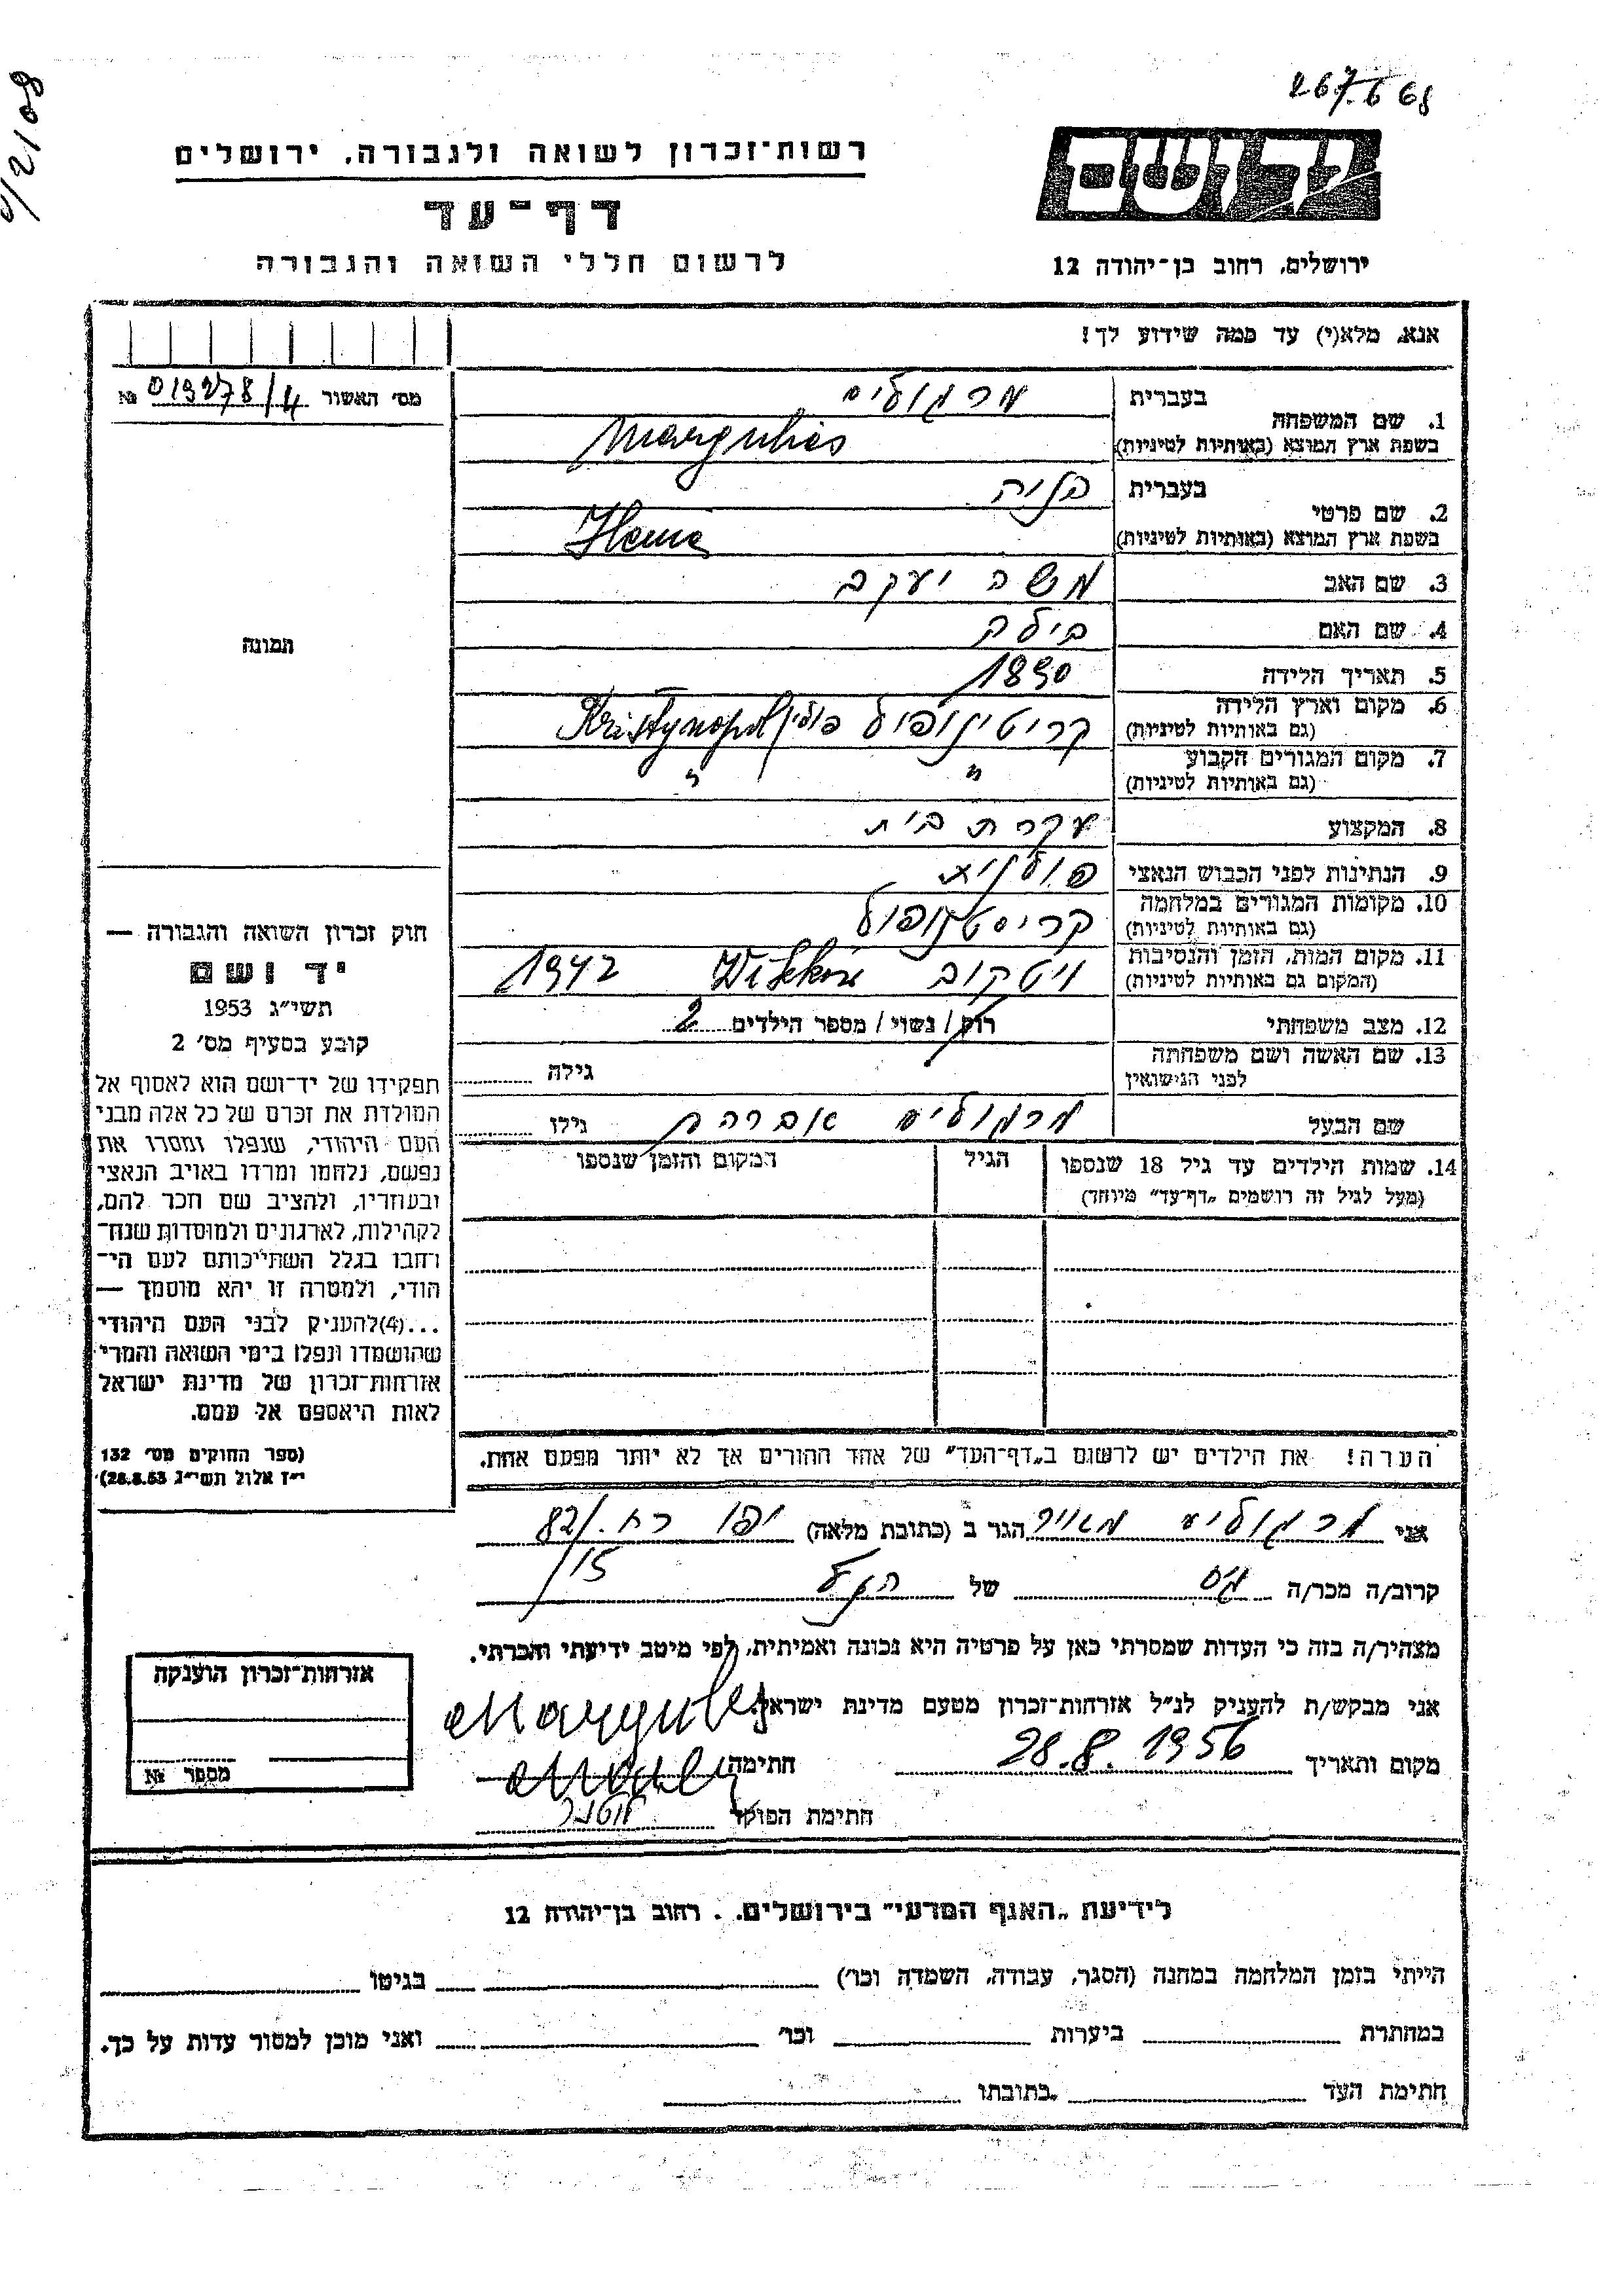 267.6 68
רשות־זכרון לשואה ולגבורה, ירושלים
דף־עד
לרשום חללי השואה והגבורה
יד ושם
ירושלים, רחוב בן־יהודה 12
אנא, מלא(י) עד כמה שידוע לך!
מס׳ האשור № 019278/4
1. שם המשפחה
בעברית מרגוליס
בשפת ארץ המוצא (באותיות לטיניות) Margulies
2. שם פרטי
בעברית
בשפת ארץ המוצא (באותיות לטיניות)
3. שם האב משה יעקב
4. שם האם
5. תאריך הלידה 1890
6. מקום וארץ הלידה
(גם באותיות לטיניות) קריסטינופול פולין Kristynopol
7. מקום המגורים הקבוע
(גם באותיות לטיניות) " "
8. המקצוע עקרת בית
9. הנתינות לפני הכבוש הנאצי פולנית
10. מקומות המגורים במלחמה
(גם באותיות לטיניות) קריסטנופול
11. מקום המות, הזמן והנסיבות
(המקום גם באותיות לטיניות) ויטקוב 1942
12. מצב משפחתי רוק / נשוי / מספר הילדים 2
13. שם האשה ושם משפחתה
לפני הנישואין
גילה
שם הבעל מרגוליס אברהם גילו
14. שמות הילדים עד גיל 18 שנספו
(מעל לגיל זה רושמים „דף־עד״ מיוחד)
הגיל
המקום והזמן שנספו
הערה! את הילדים יש לרשום ב„דף־העד״ של אחד ההורים אך לא יותר מפעם אחת.
תמונה
חוק זכרון השואה והגבורה —
יד ושם
תשי״ג 1953
קובע בסעיף מס׳ 2
תפקידו של יד־ושם הוא לאסוף אל
המולדת את זכרם של כל אלה מבני
העם היהודי, שנפלו ומסרו את
נפשם, נלחמו ומרדו באויב הנאצי
ובעוזריו, ולהציב שם וזכר להם,
לקהילות, לארגונים ולמוסדות שנח־
רחבו בגלל השתייכותם לעם הי־
הודי, ולמטרה זו יהא מוסמך —
...(4)להעניק לבני העם היהודי
שהושמדו ונפלו בימי השואה והמרי
אזרחות־זכרון של מדינת ישראל
לאות היאספם אל עמם.
(ספר החוקים מס׳ 132
י״ז אלול תשי״ג 28.8.53)
אני מרגוליס מאיר הגר ב (כתובת מלאה) יפו רח. 82/
15/
קרוב/ה מכר/ה גיס של הנ״ל
מצהיר/ה בזה כי העדות שמסרתי כאן על פרטיה היא נכונה ואמיתית, לפי מיטב ידיעתי והכרתי.
אני מבקש/ת להעניק לנ״ל אזרחות־זכרון מטעם מדינת ישראל.
Margulies
מקום ותאריך 28.8.1956 חתימה
חתימת הפוקד
אזרחות־זכרון הוענקה
מספר №
לידיעת „האגף המדעי״ בירושלים. . רחוב בן־יהודה 12
הייתי בזמן המלחמה במחנה (הסגר, עבודה, השמדה וכו׳) בגיטו
במחתרת ביערות וכו׳ ואני מוכן למסור עדות על כך.
חתימת העד כתובתו